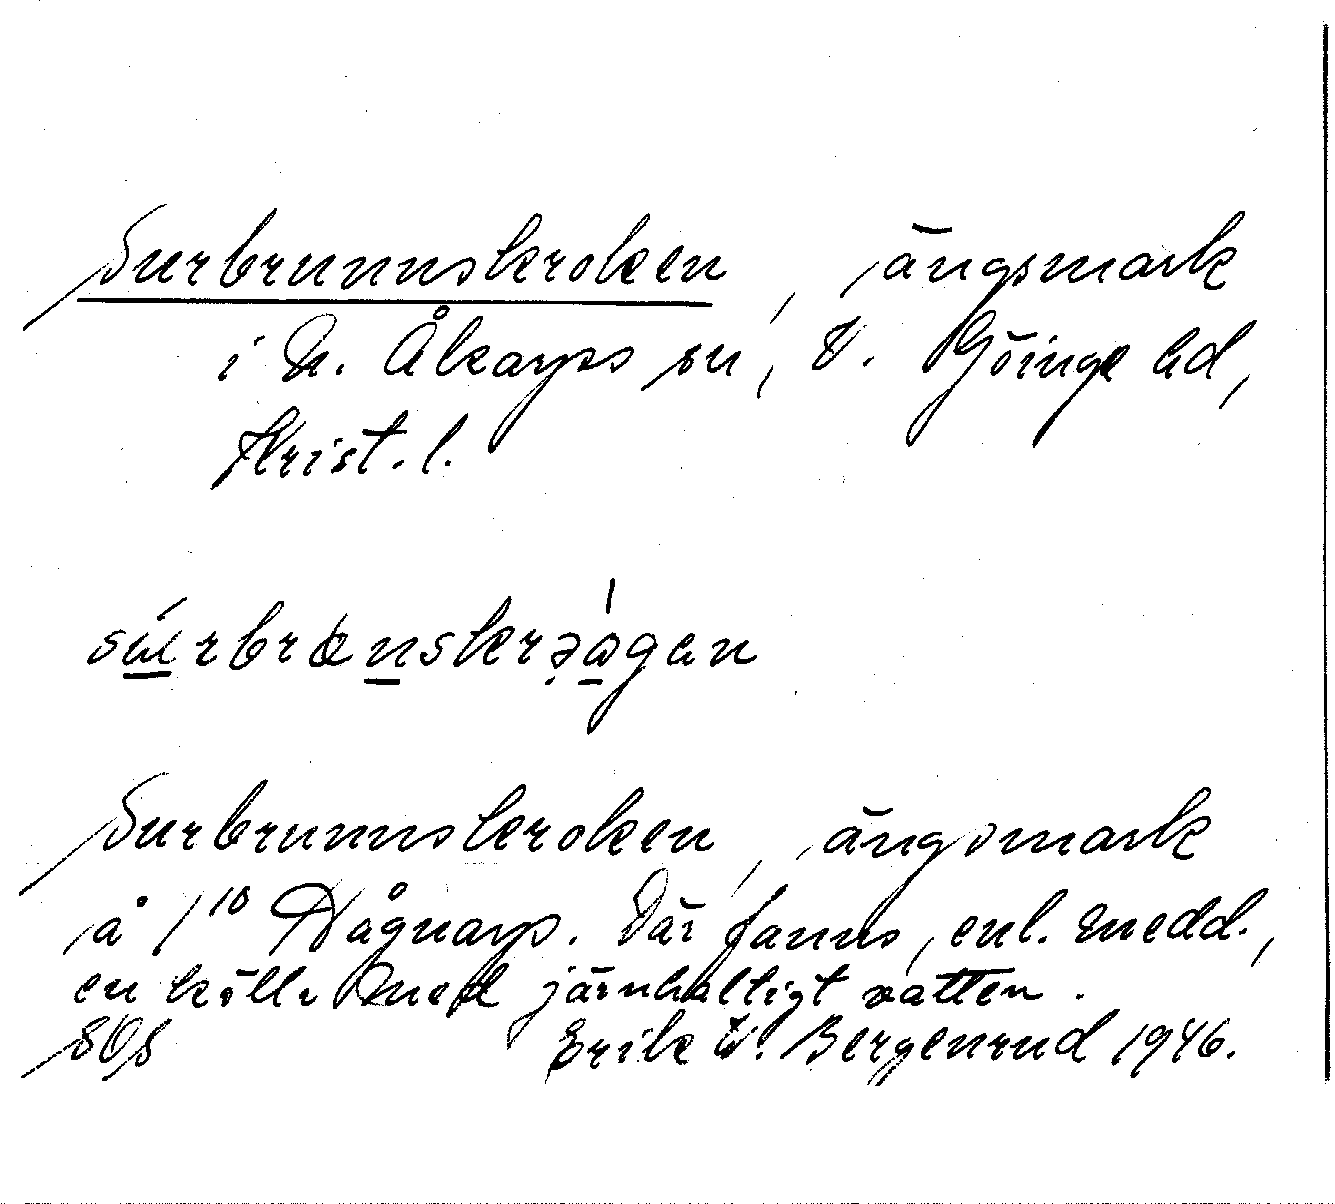 Surbrunnskroken, ängsmark
i N. Åkarps sn, V. Göinge hd,
Krist. l.
Surbrunnskroken, ängsmark
å 1¹⁰ Hågnarp. Där fanns, enl. medd.,
en källa med järnhaltigt vatten.
Erik W. Bergenrud 1946.